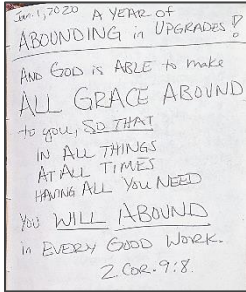 Jan. 1, 2020
A YEAR OF
ABOUNDING in UPGRADES!
AND GOD is ABLE to make
ALL GRACE ABOUND
to you, SO THAT
IN ALL THINGS
AT ALL TIMES
HAVING ALL YOU NEED
YOU WILL ABOUND
in EVERY GOOD WORK.
2 COR. 9:8.